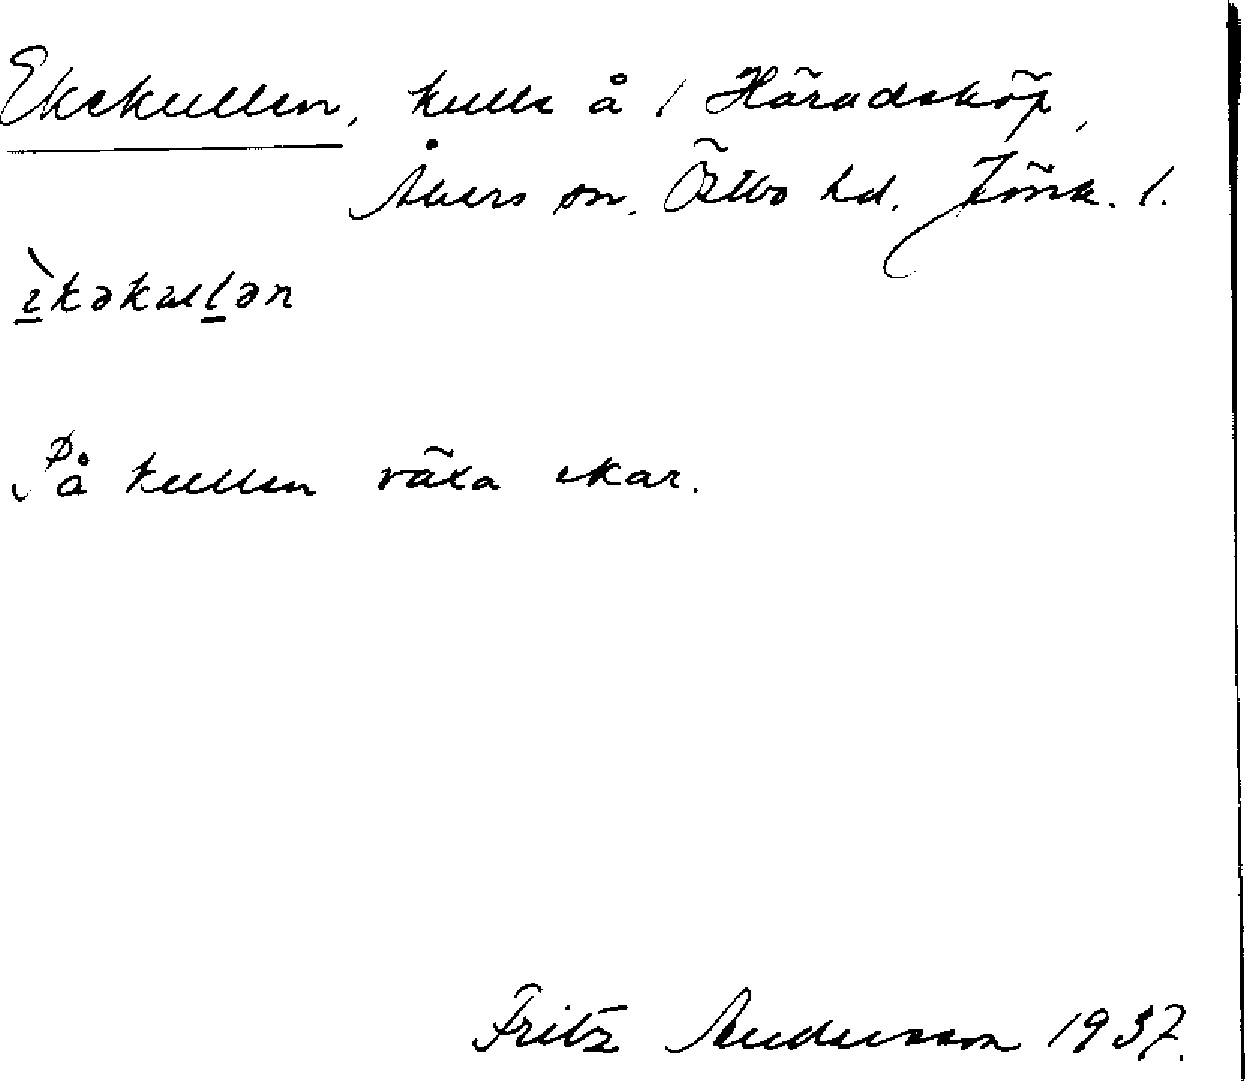 Ekekullen, kulle å 1 Häradsköp,
Åkers sn. Östbo hd. Jönk. l.
èkəkullən
På kullen växa ekar.
Fritz Andersson 1937.